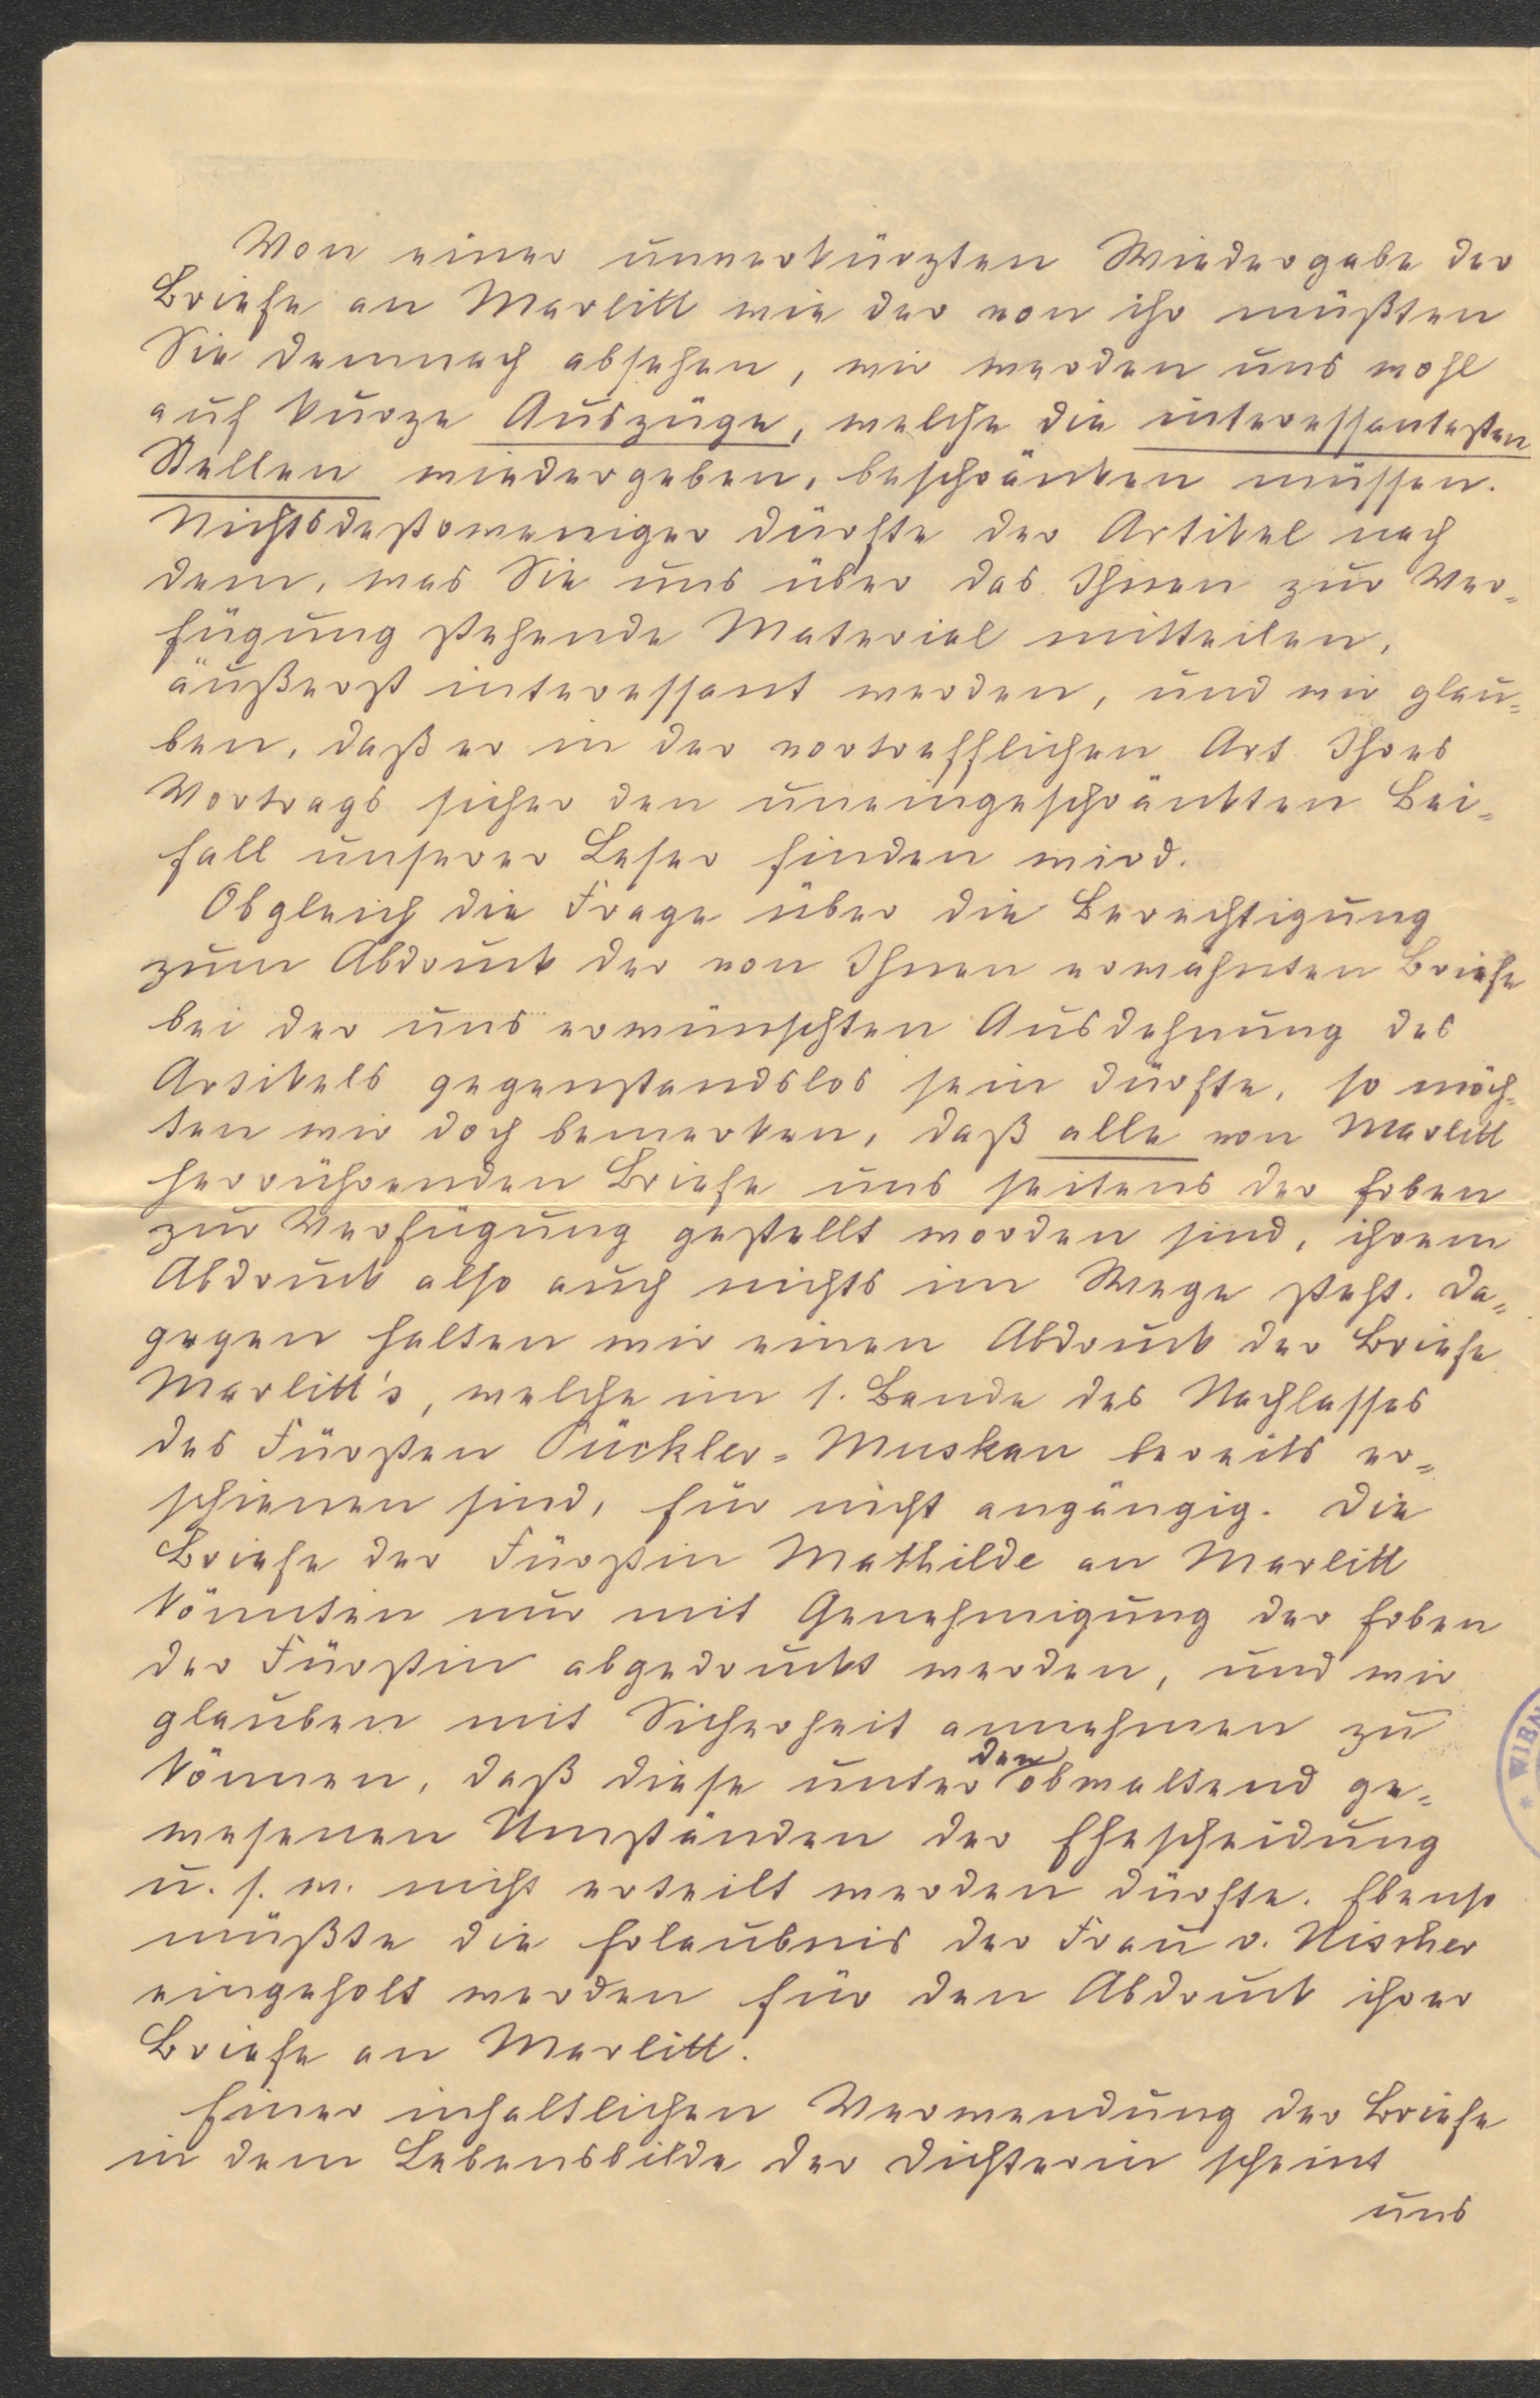 Von einer unverkürzten Wiedergabe der
Briefe an Marlitt wie der von ihr müßten
Sie demnach absehen, wir werden uns wohl
auf kurze Auszüge, welche die interessantesten
Stellen wiedergeben, beschränken müssen.
Nichtsdestoweniger dürfte der Artikel nach
dem, was Sie uns über das Ihnen zur Ver=
fügung stehende Material mitteilen,
äußerst interessant werden, und wir glau=
ben, daß er in der vortrefflichen Art Ihres
Vortrags sicher den uneingeschränkten Bei=
fall unserer Leser finden wird.
Obgleich die Frage über die Berechtigung
zum Abdruck der von Ihnen erwähnten Briefe
bei der uns erwünschten Ausdehnung des
Artikels gegenstandslos sein dürfte, so möch=
ten wir doch bemerken, daß alle von Marlitt
herrührenden Briefe uns seitens der Erben
zur Verfügung gestellt worden sind, ihrem
Abdruck also auch nichts im Wege steht. Da=
gegen halten wir einen Abdruck der Briefe
Marlitt's, welche im 1. Bande des Nachlasses
des Fürsten Pückler=Muskau bereits er=
schienen sind, für nicht angängig. Die
Briefe der Fürstin Mathilde an Marlitt
könnten nur mit Genehmigung der Erben
der Fürstin abgedruckt werden, und wir
glauben mit Sicherheit annehmen zu
können, daß diese unter den obwaltend ge=
wesenen Umständen der Ehescheidung
u. s. w. nicht erteilt werden dürfte. Ebenso
müßte die Erlaubnis der Frau v. Nischer
eingeholt werden für den Abdruck ihrer
Briefe an Marlitt.
Einer inhaltlichen Verwendung der Briefe
in dem Lebensbilde der Dichterin scheint
uns